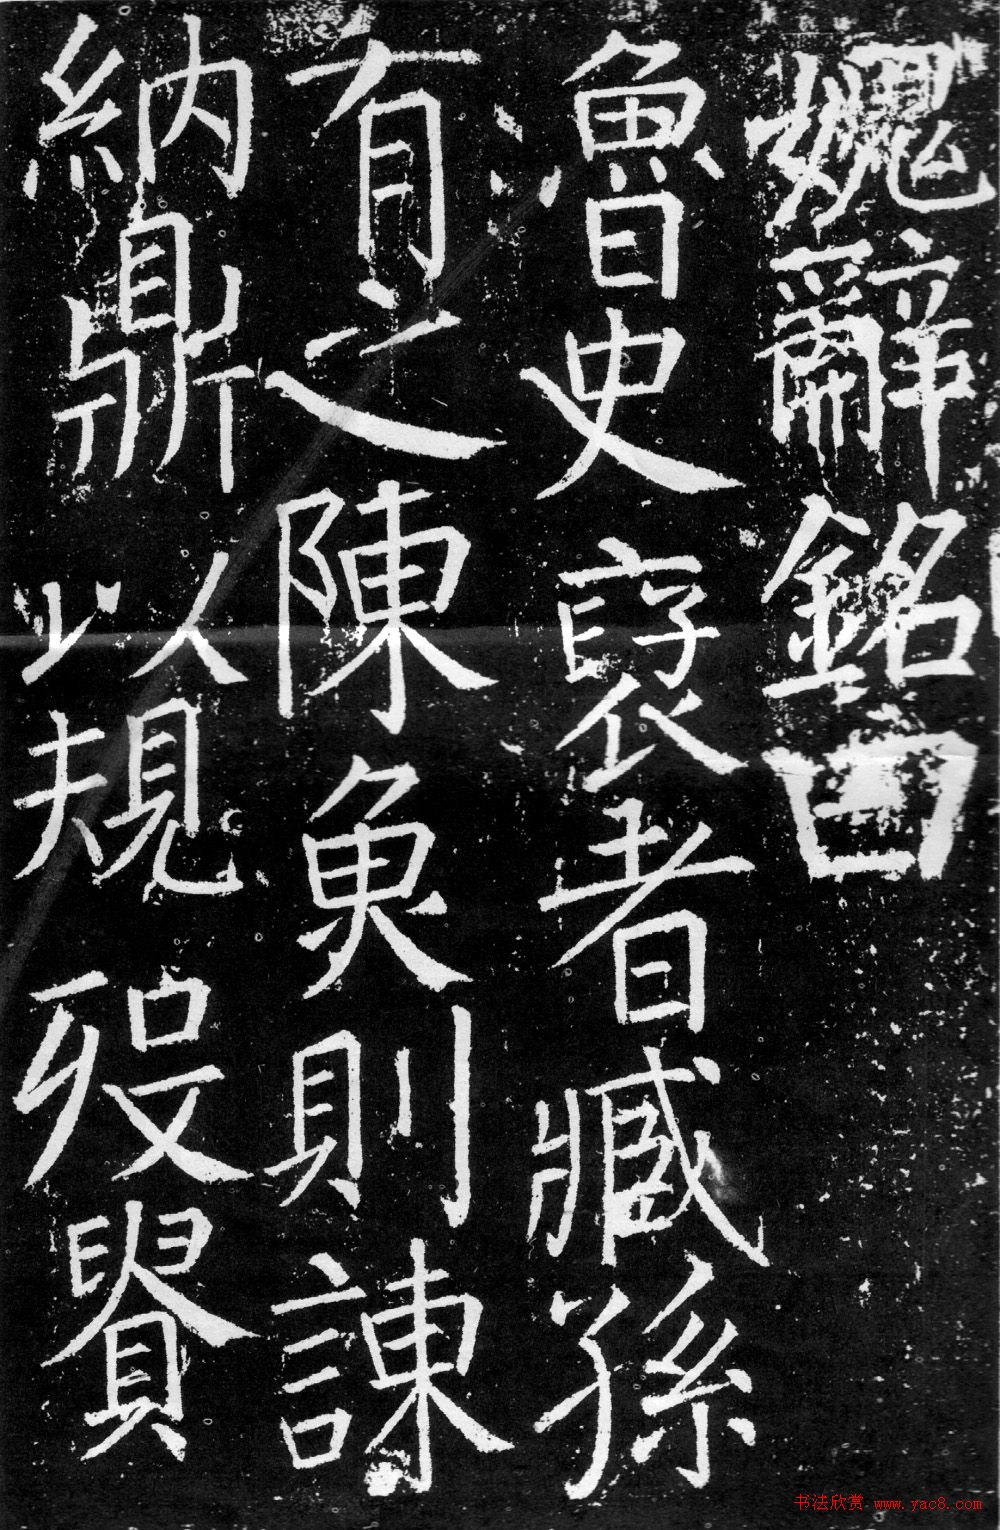 媿辭銘曰
魯史襃者臧孫
有之陳魚則諫
納鼎以規歿
书法欣赏 www.yac8.com